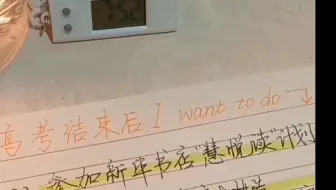 高考结束后 I want to do
参加新华书店"慧悦读"计划